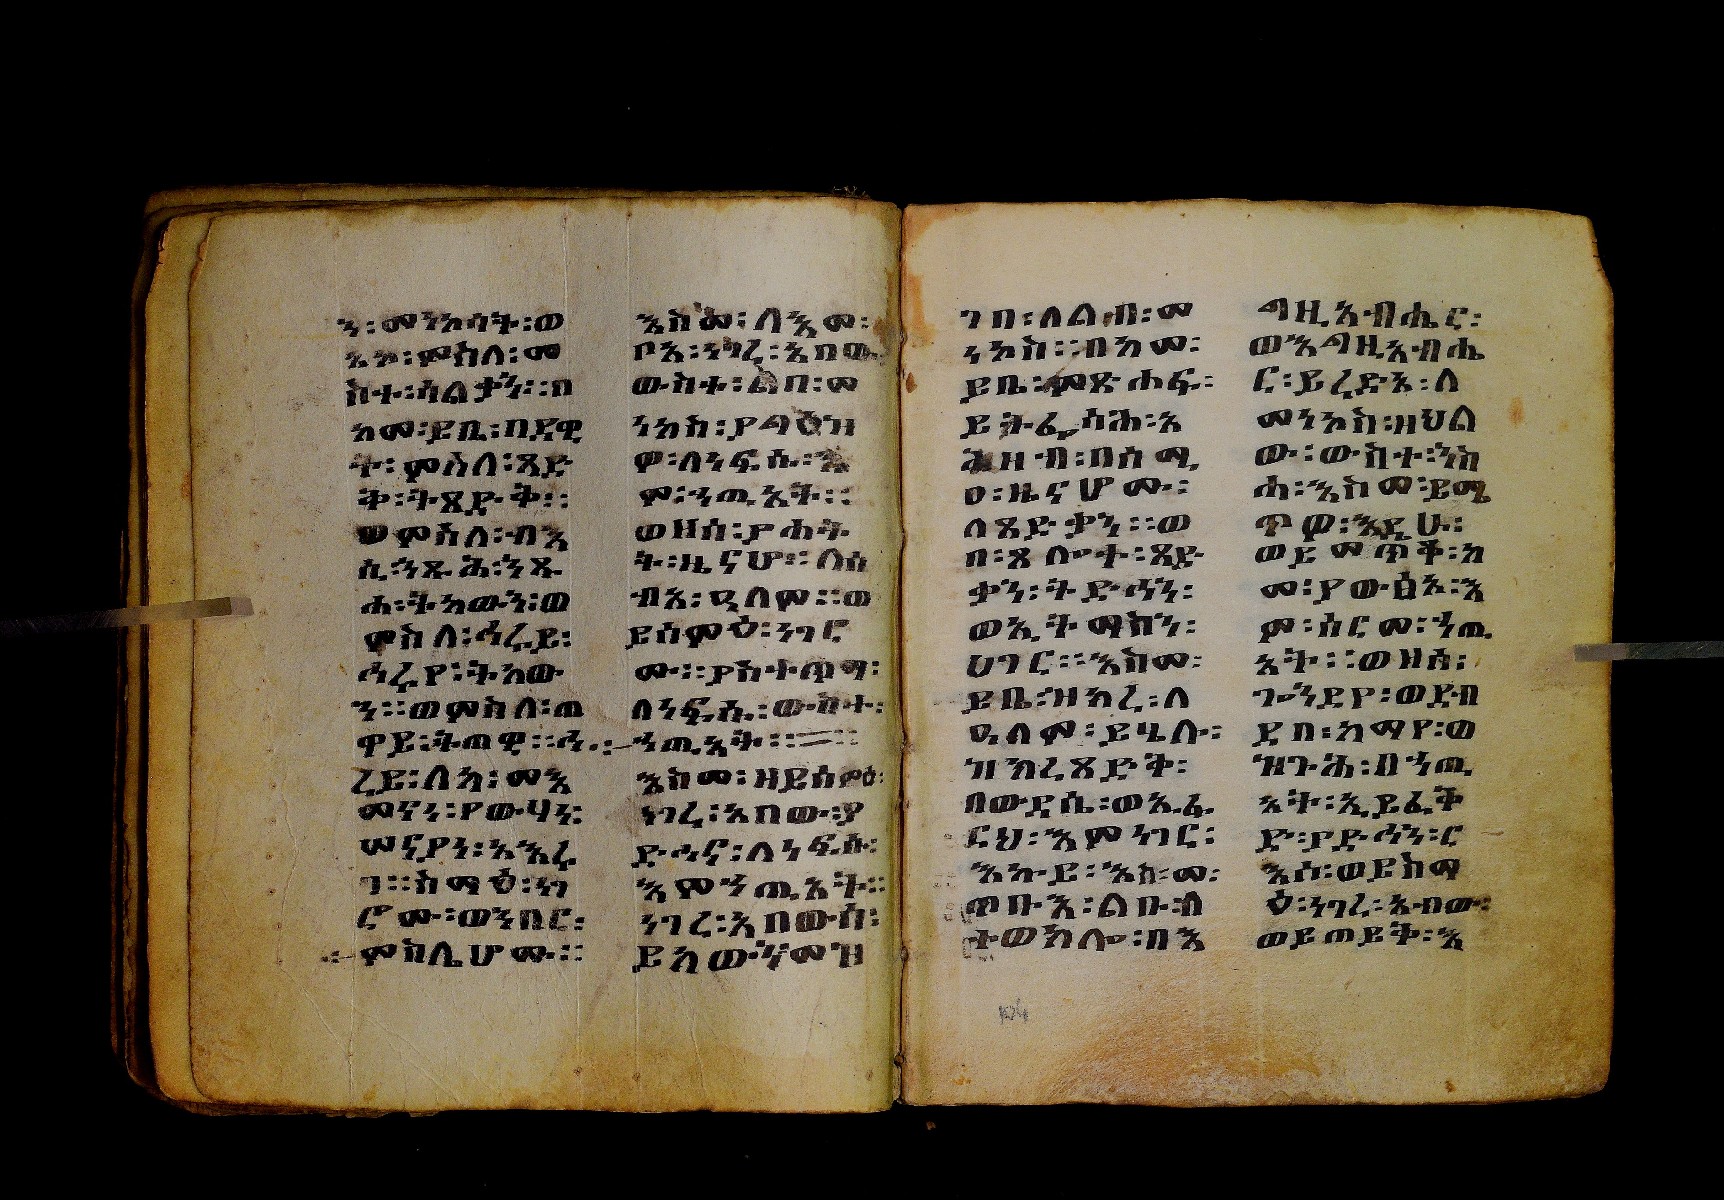 ን፡መነኮሳት፡ወ
አኮ፡ምስለ፡መ
ስተ፡ሳልቃን፡፡በ
ከመ፡ይቤ፡በዳዊ
ት፡ምስለ፡ጻድ
ቅ፡ትጸድቅ፡፡
ወምስለ፡ብእ
ሲ፡ንጹሕ፡ንጹ
ሐ፡ትከውን፡ወ
ምስለ፡ኅሩይ፡
ኅሩየ፡ትከው
ን፡፡ወምስለ፡ጠ
ዋይ፡ትጠዊ፡፡ኅ
ረይ፡ለከ፡መአ
መኖን፡የውሃን፡
ሠናያን፡አኣረ
ገ፡፡ስማዕ፡ነገ
ሮሙ፡ወንበር፡
ምስሌሆሙ፡፡
እስመ፡ለእመ፡
ቦአ፡ነገረ፡አበው
ውስተ፡ልበ፡መ
ነኮስ፡ያግዕዝ
ዎ፡ለነፍሱ፡እ
ም፡ኀጢአት፡፡
ወዘሰ፡ያሐት
ት፡ዜናሆ፡፡ለሰ
ብእ፡ዲለም፡፡ወ
ይሰምዕ፡ነገሮ
ሙ፡፡ያስተጥግ፡
ለነፍሲ፡ውስተ፡
ኀጢአት፡፡
እስመ፡ዘይሰምዕ፡
ነገረ፡አበው፡ያ
ድኅኖ፡ለነፍሱ፡
እምኀጢአት፡፡
ነገረ፡አበውሰ፡
ይከውን፡መዝ
ገበ፡ለልብ፡መ
ነኮስ፡፡በከመ፡
ይቤ፡መጽሐፍ፡
ይትፌሳሕ፡አ
ሕዛብ፡በሰሚ
ዐ፡ዜናሆሙ፡
ለጻድቃን፡፡ወ
በ፡ጸሎተ፡ጻድ
ቃን፡ትድኅን፡
ወኢትማስን፡
ሀገር፡፡እስመ፡
ይቤ፡ዝክረ፡ለ
ዲለም፡ይሄሉ፡
ዝክረ፡ጻድቅ፡
በውዳሴ፡ወኢፈ
ርህ፡እምነገር፡
እኩይ፡እስመ፡
ጥቡእ፡ልቡ፡ለ
ተወክሎ፡በእ
ግዚአብሔር፡
ወእግዚአብሔ
ር፡ይረድኦ፡ለ
መነኮስ፡ዘህል
ው፡ውስተ፡ንስ
ሐ፡እስመ፡ይሜ
ጥዎ፡እዲሁ፡
ወይመጥቅ፡ከ
መ፡ያውፅኦ፡እ
ም፡ሰርመ፡ኀጢ
አት፡፡ወዘሰ፡
ጐንደየ፡ወደብ
ደበ፡አማየ፡ወ
ዝጉሕ፡በኀጢ
አት፡ኢይፈቅ
ድ፡ያድኅን፡ር
እሰ፡ወይስማ
ዕ፡ነገረ፡አበው፡
ወይጠይቅ፡እ